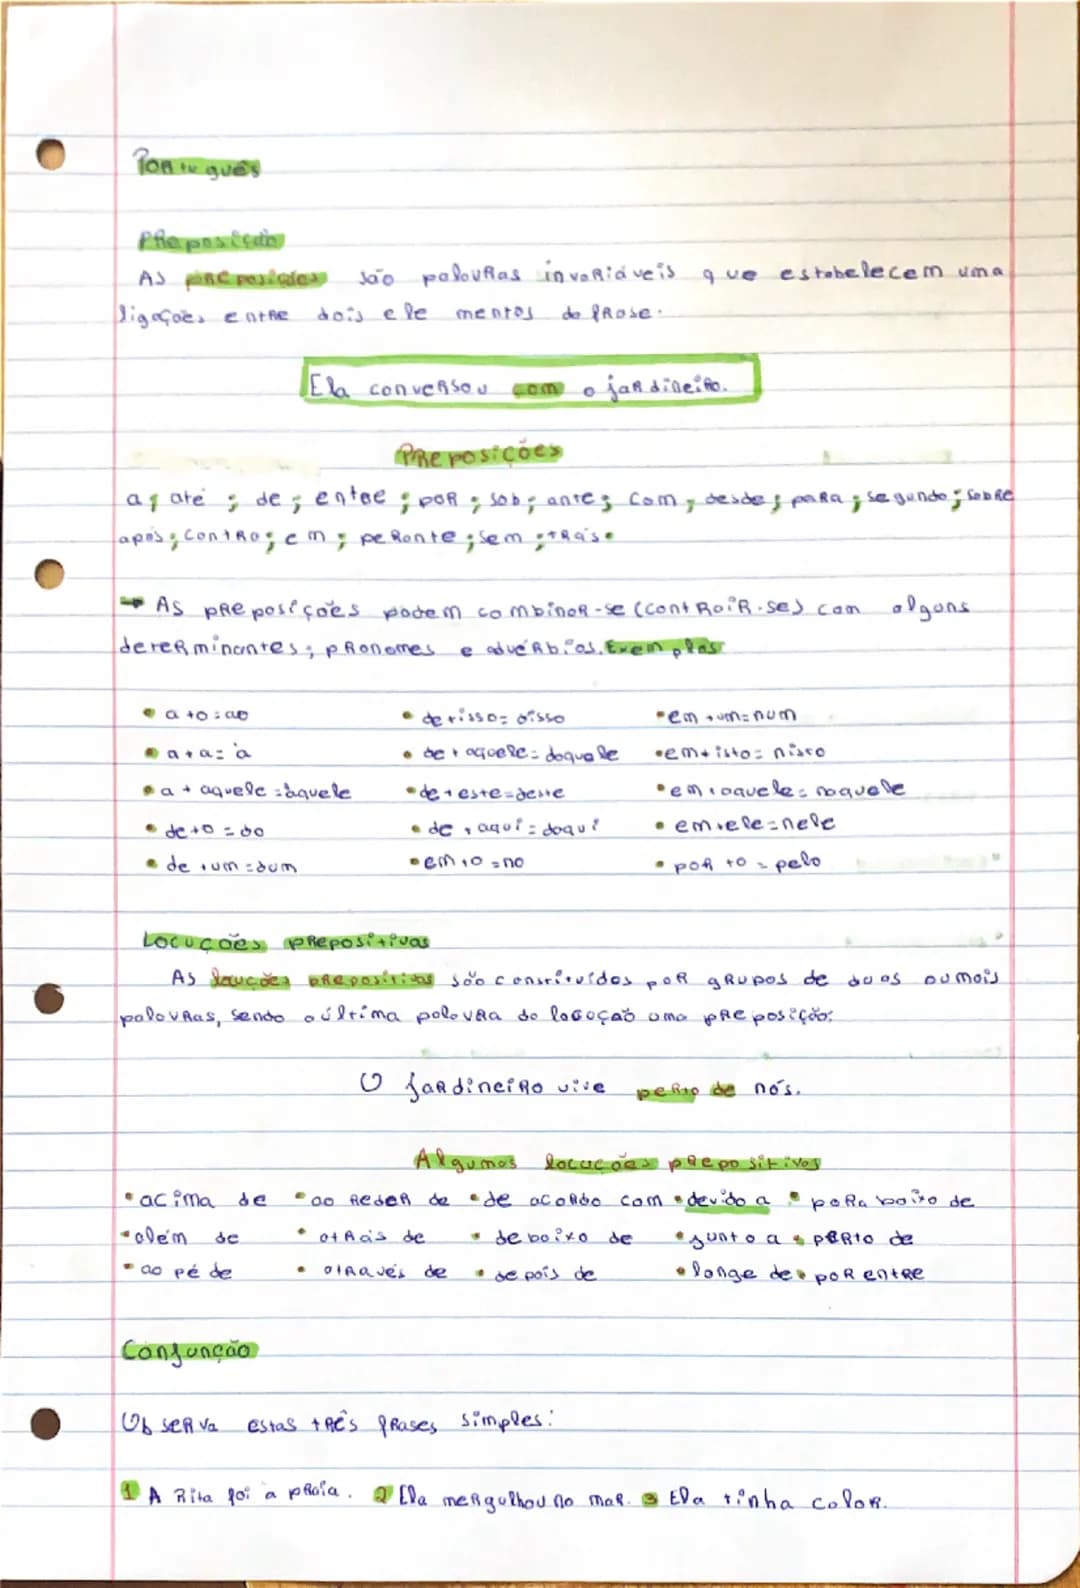 Português
Preposição
As preposições são palavras invariáveis que estabelecem uma
ligações entre dois elementos da frase.
Ela conversou com o jardineiro.
Preposições
a; até; de; entre; por; sob; ante; com; desde; para; segundo; sobre
após; contra; em; perante; sem; trás.
As preposições podem combinar-se (contrair-se) com alguns
dererminantes; pronomes e advérbios. Exemplos
• a+o=ao • de+isso=disso • em+um=num
• a+a=à • de+aquele=daquele • em+isto=nisto
• a+aquele=àquele • de+este=deste • em+aquele=naquele
• de+o=do • de+aqui=daqui • em+ele=nele
• de+um=dum • em+o=no • por+o=pelo
Locuções prepositivas
As louções prepositivas são constituídas por grupos de duas ou mais
palavras, sendo a última palavra da locução uma preposição:
O jardineiro vive perto de nós.
Algumas locuções prepositivas
• acima de • ao redor de • de acordo com • devido a • para baixo de
• além de • atrás de • debaixo de • junto a • perto de
• ao pé de • através de • depois de • longe de • por entre
Conjunção
Observa estas três frases simples:
1 A Rita foi a praia. 2 Ela mergulhou no mar. 3 Ela tinha calor.